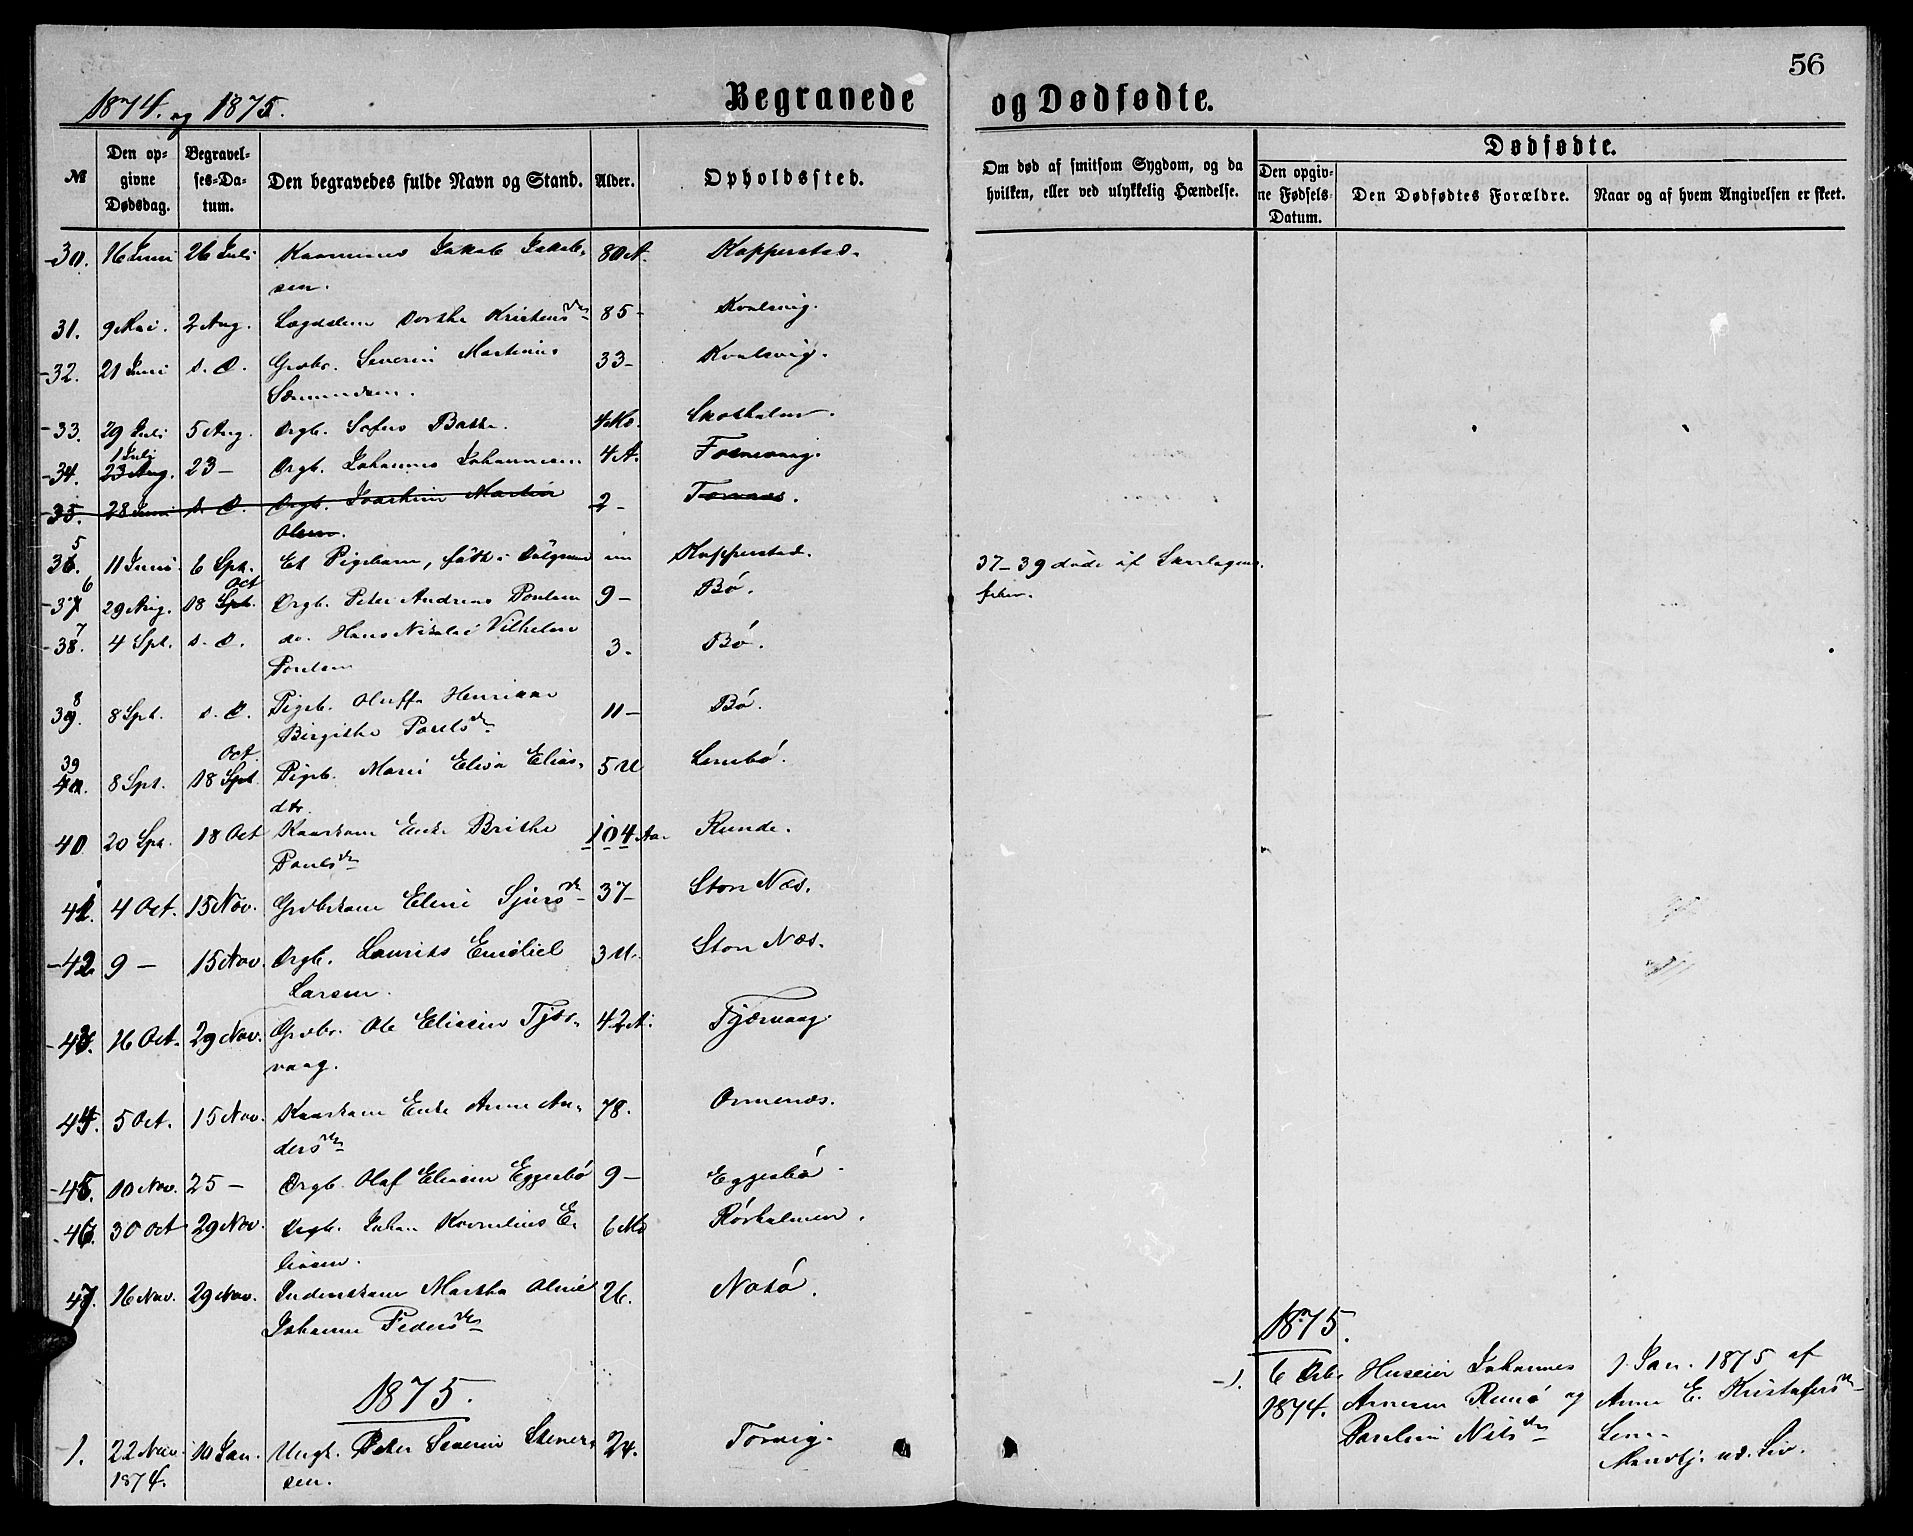 56
1874. og 1875.
Begravede og Dødfødte.
№
Den opgivne Dødsdag.
Begravelses-Datum.
Den begravedes fulde Navn og Stand.
Alder.
Opholdssted.
Om død af smitsom Sygdom, og da hvilken, eller ved ulykkelig Hændelse.
Dødfødte.
Den opgivne Fødsels-Datum.
Den Dødfødtes Forældre.
Naar og af hvem Angivelsen er skeet.
30. 16 Juni 26 Juli Jakob Jakob- 80 A. Kopperstad.
sen.
31. 9 Mai. 2 Aug. Dorthe Kristensdtr 85 - Kvalsvig.
32. 21 Juni s. D. Grdbr. Severin Martinus 33 - Kvalsvig.
33. 29 Juli 5 Aug. Drgb. Bakke. 4 Mo.
1 Juli
34. 23 Aug. 23 - Drgb. Johannes Johannesen 4 A. Fosnavaag.
35. 28 Juni s. D. Drgb. Joachim Martin 2 -
Olsen.
5
36. 11 Juni. 6 Spt. Et Pigebarn, født i Kopperstad.
37-39 døde af Skarlagens-
feber.
6 Oct
37 29 Aug. 18 Spt. Drgb. Peter Andreas Poulsen 9 - Bø.
7
38. 4 Spt. s. D. do. Hans Nikolai Vilhelm 3. Bø.
Poulsen
8
39. 8 Spt. s. D. Pigeb. Oluffa 11 - Bø.
Birgithe Poulsdtr
39 Oct.
40. 8 Spt. 18 Spt Pigeb. Marie Elisa Elias- 5 U Lernbø.
dtr.
40 20 Spt. 18 Oct Enke Brithe 104 Aar Runde.
Poulsdtr
41. 4 Oct. 15 Nov. Grdbrkone Eline Sjursdtr 37 - Store Næs.
42. 9 - 15 Nov. Drgb. Laurits 3 U. Store Næs.
Larsen.
43. 16 Oct. 29 Nov. Grdbr. Ole Eliasen Tjør- 42 A. Tjørvaag.
vaag.
44. 5 Oct. 15 Nov. Enke Anne An- 78. Ormenæs.
dersdtr
45. 10 Nov. 25 - Drgb. Olaf Eliasen Eggesbø 9 - Eggesbø.
46. 30 Oct 29 Nov. Drgb. Johan Kornelius E- 6 Mo
liasen.
47. 16 Nov. 29 Nov. Inderstkone Martha Oline 26. Notø.
Johanne Pedersdtr
1875.
1. 22 Nov. 10 Jan. Ungk. Peter Severin Steiner- 24. Torvig.
1874. sen.
1875.
1. 6 Dcb. Huseier Johannes 1 Jan. 1875 af
1874. Arnesen Remø og Anne E. Kristofersdtr
Pauline Nilsdtr
Mandkj. ud. Liv.